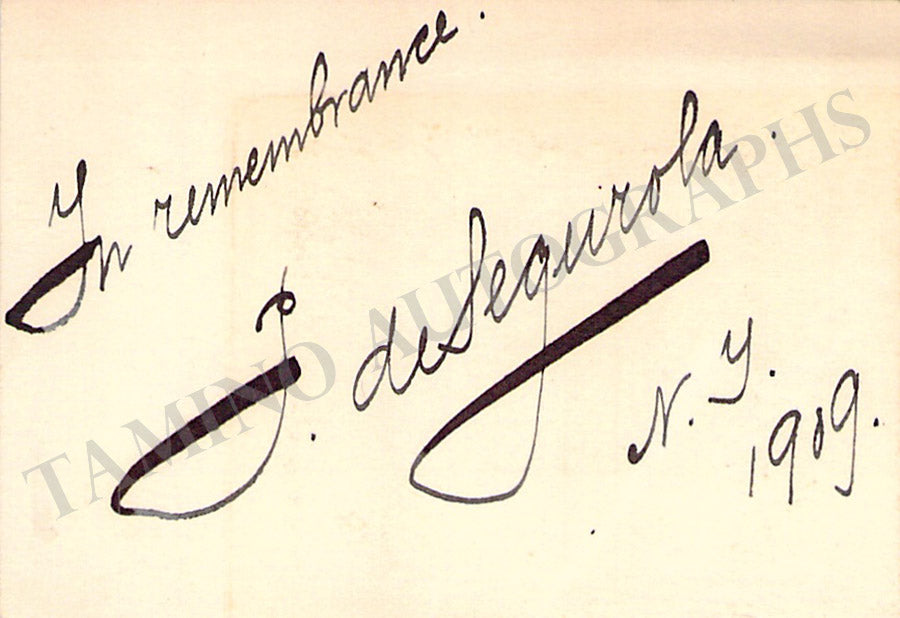 In remembrance.
J. de Segurola.
N. Y.
1909.
TAMINO AUTOGRAPHS